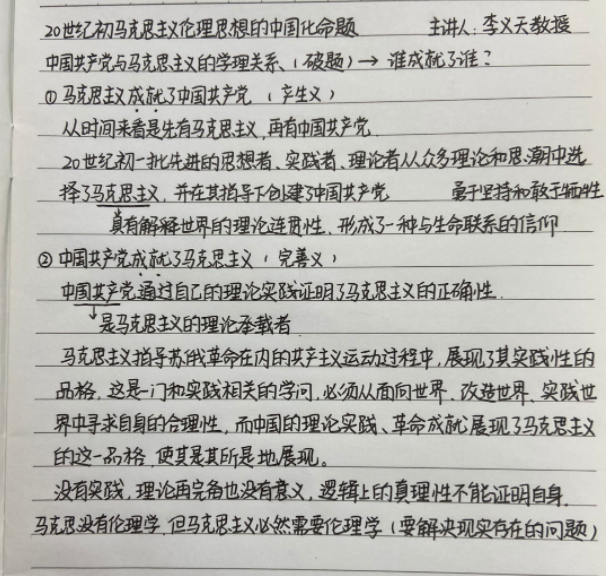 20世纪初马克思主义伦理思想的中国化命题 主讲人:李义天教授
中国共产党与马克思主义的学理关系、(破题)→ 谁成就了谁?
① 马克思主义成就了中国共产党 (产生义)
从时间来看是先有马克思主义,再有中国共产党
20世纪初一批先进的思想者、实践者、理论者从众多理论和思潮中选
择了马克思主义,并在其指导下创建了中国共产党 勇于坚持和敢于牺牲
具有解释世界的理论连贯性,形成了一种与生命联系的信仰
② 中国共产党成就了马克思主义(完善义)
中国共产党通过自己的理论实践证明了马克思主义的正确性.
↓是马克思主义的理论承载者
马克思主义指导苏俄革命在内的共产主义运动过程中,展现了其实践性的
品格,这是一门和实践相关的学问,必须从面向世界、改造世界、实践世
界中寻求自身的合理性,而中国的理论实践、革命成就展现了马克思主义
的这一品格,使其是其所是地展现。
没有实践,理论再完备也没有意义,逻辑上的真理性不能证明自身.
马克思没有伦理学,但马克思主义必然需要伦理学(要解决现实存在的问题)